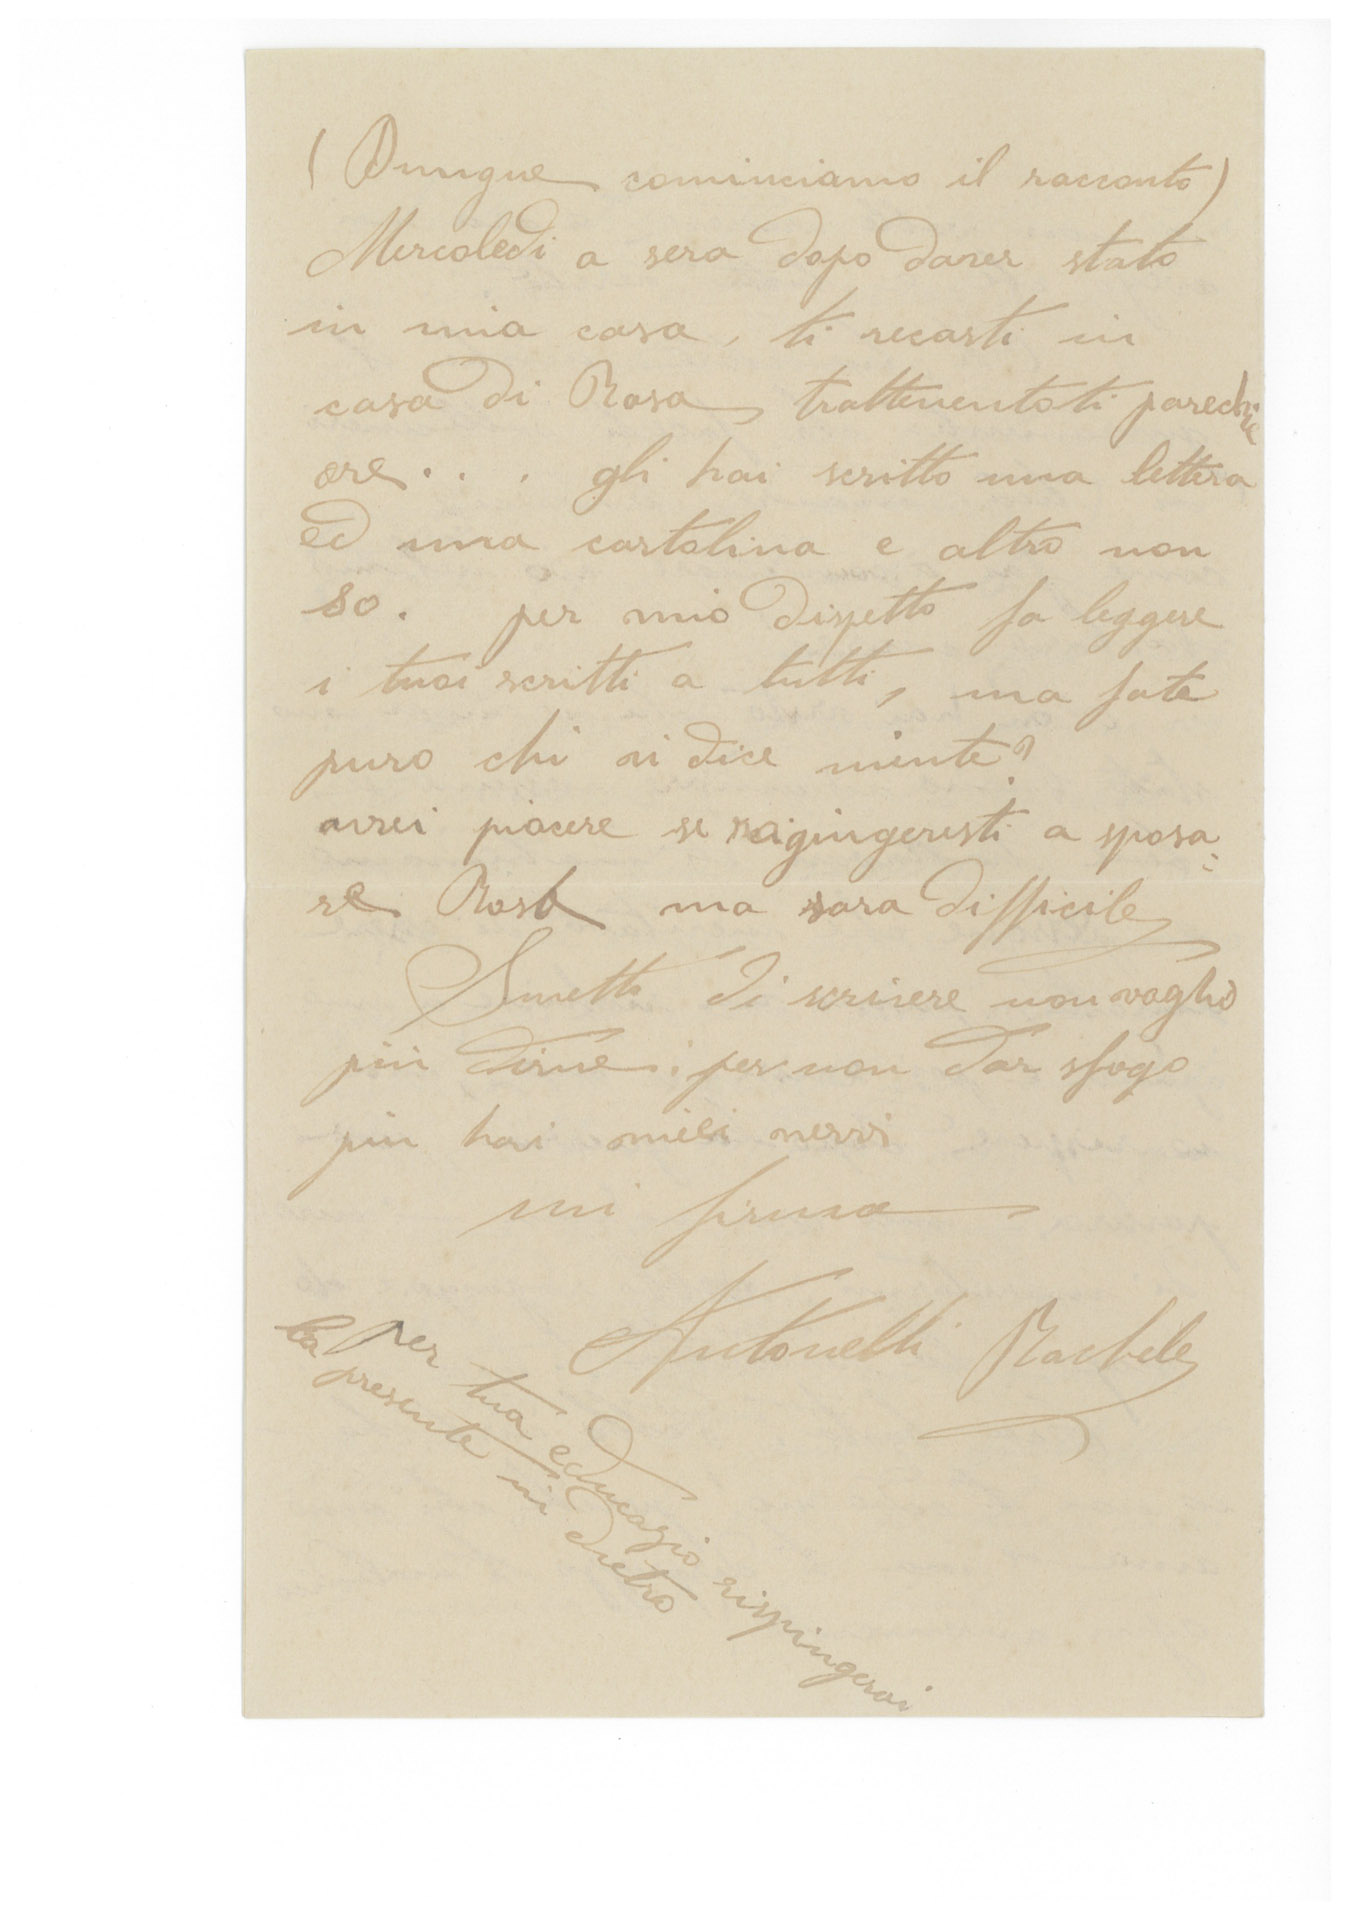 ( Dunque cominciamo il racconto )
Mercoledi a sera dopo daver stato
in mia casa, ti recasti in
casa di Rosa trattenentoti parechie
ore . . . gli hai scritto una lettera
ed una cartolina e altro non
so. per mio dispetto fa leggere
i tuoi scritti a tutti, ma fate
puro chi vi dice niente?
avrei piacere se ragiungeresti a sposa=
re Rosa ma sara difficile
Smetto di scrivere non voglio
più dirne; per non dar sfogo
più hai miei nervi
mi firmo
Antonelli Rachele
Per tua educazio rispingerai
la presente in dietro